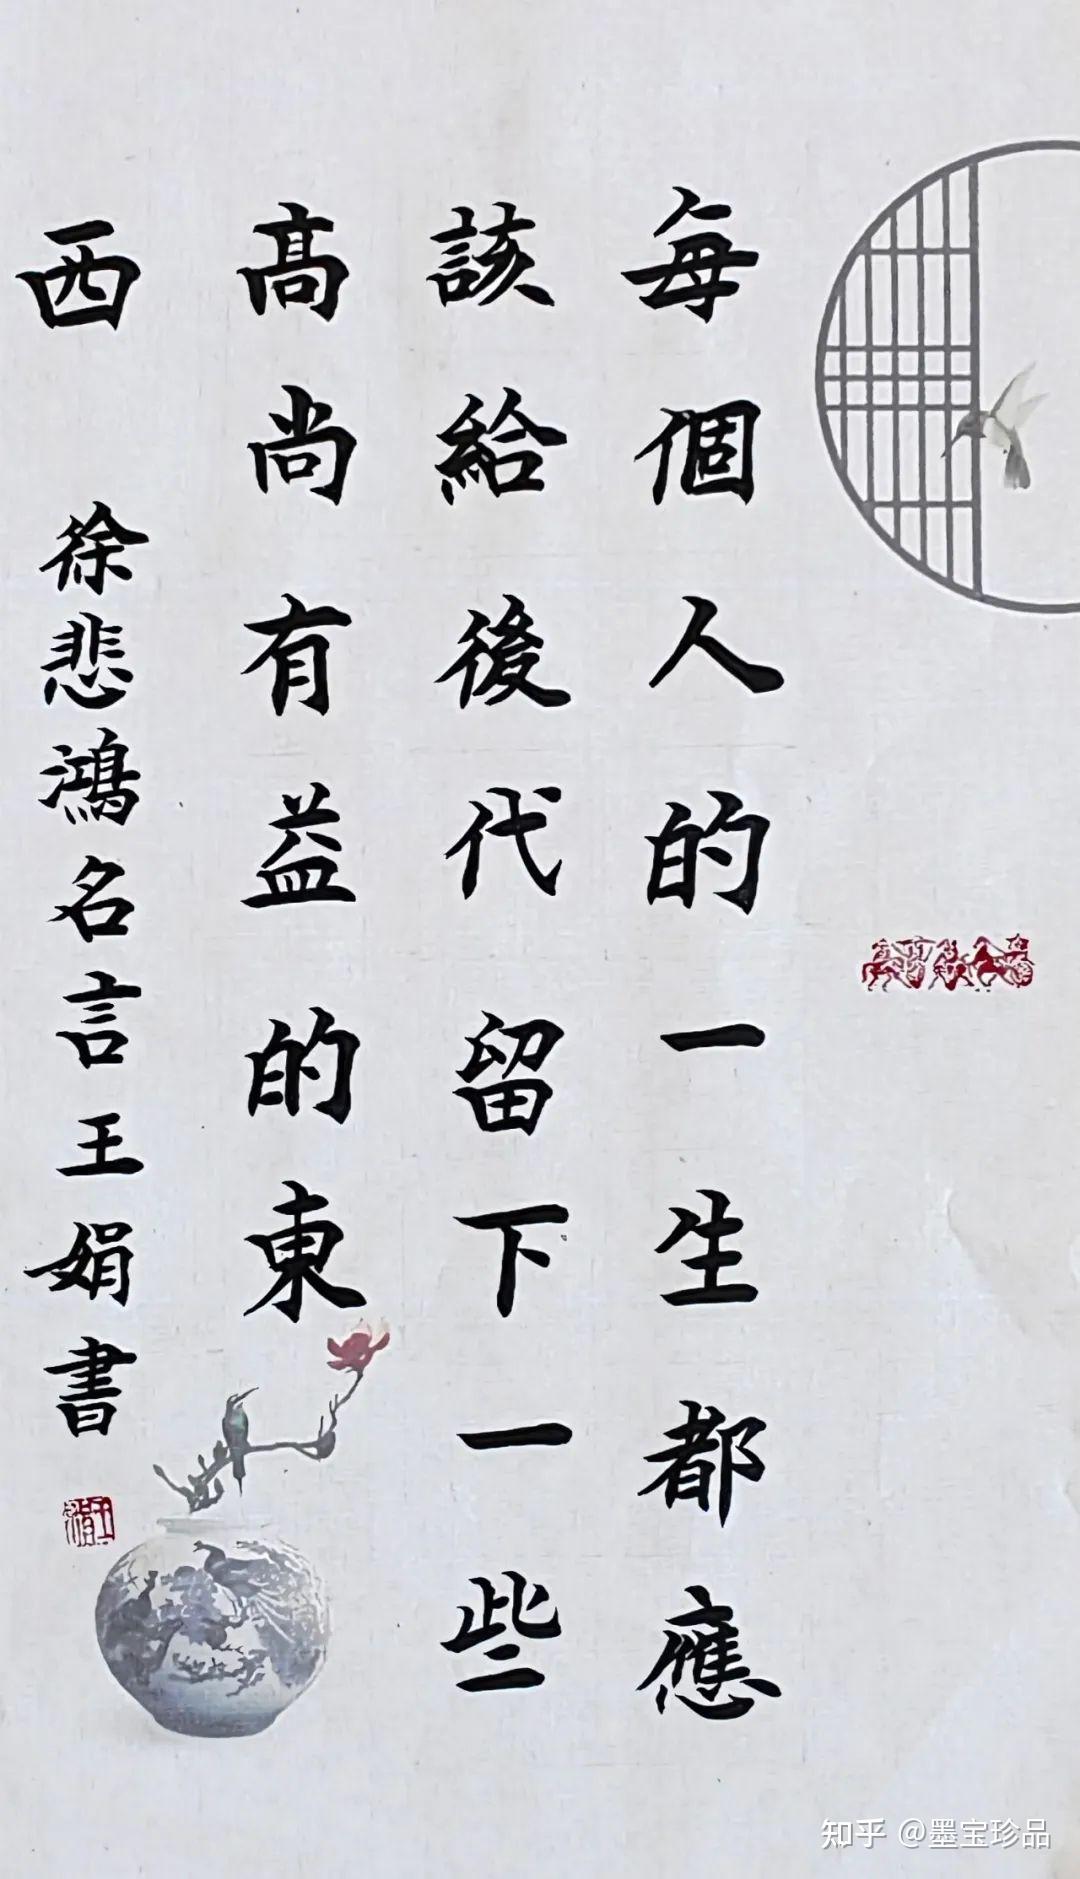 每個人的一生都應
該給後代留下一些
高尚有益的東
西 徐悲鴻名言王娟書
知乎 @墨宝珍品